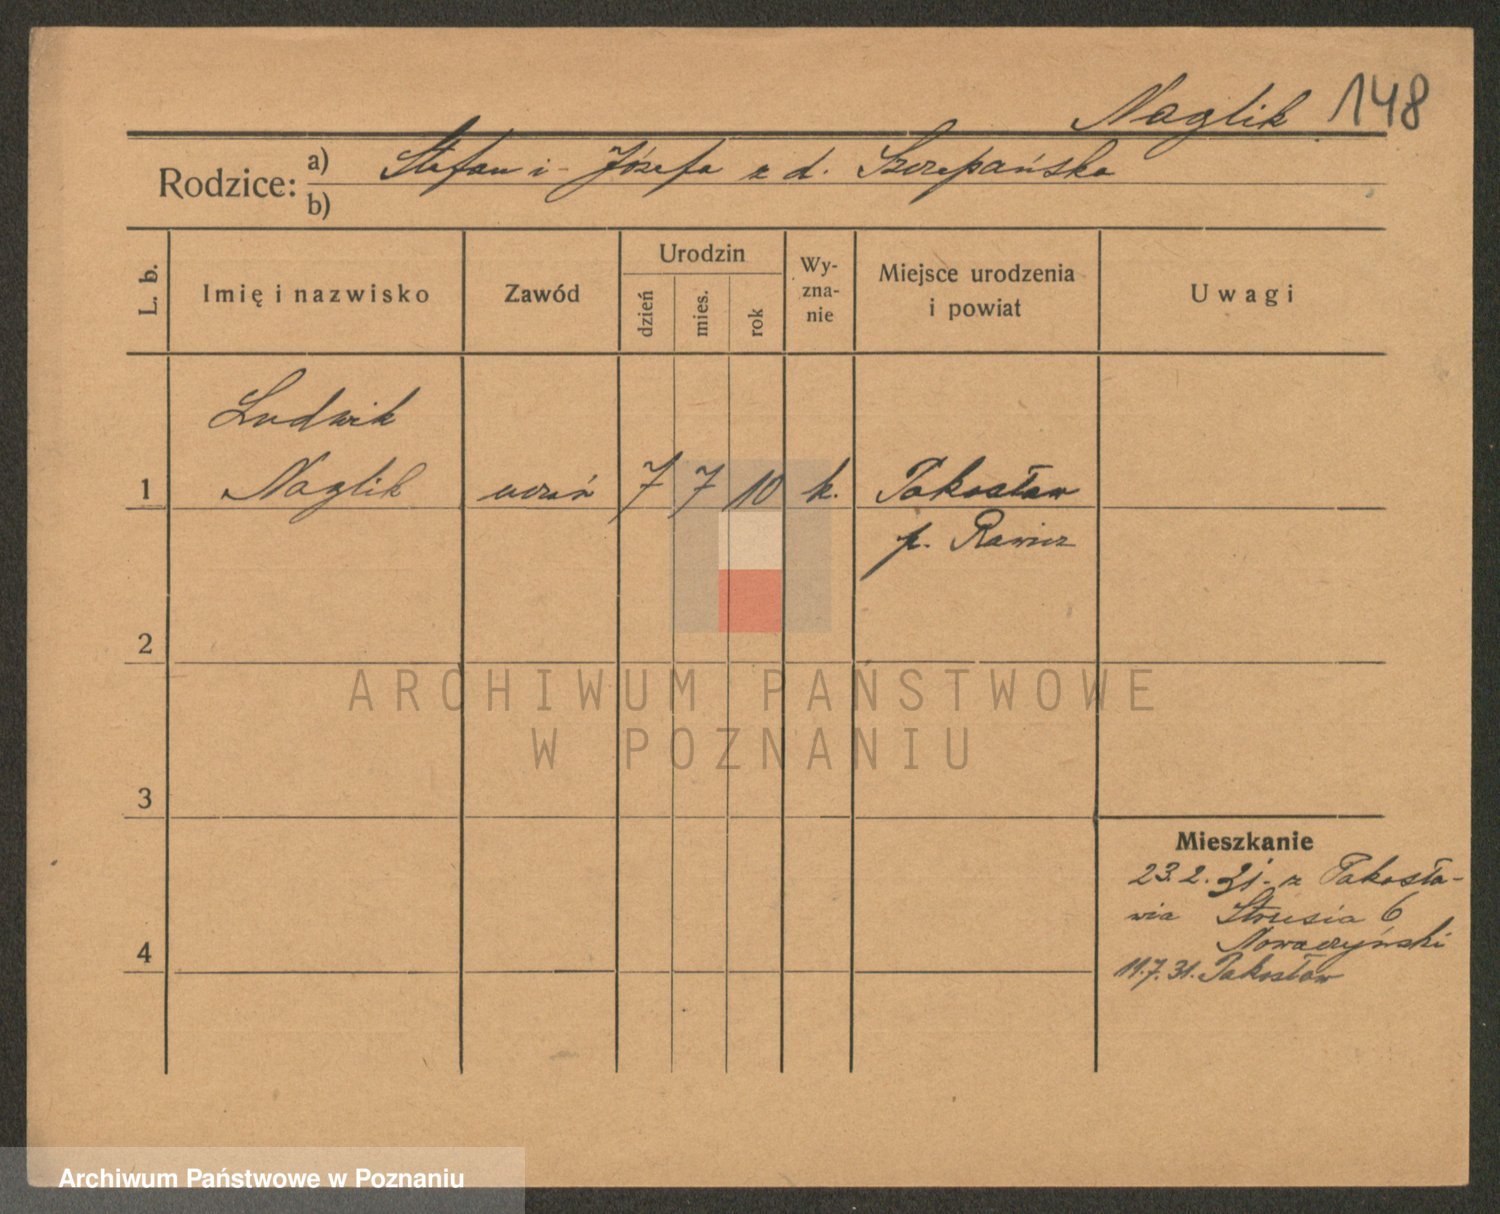 Naglik 148
Rodzice: a) Stefan i Józefa z d. Szczepańska
b)
L. b.
Imię i nazwisko
Zawód
Urodzin
dzień
mies.
rok
Wy-
zna-
nie
Miejsce urodzenia
i powiat
Uwagi
Ludwik
1 Naglik uczeń 7 7 10 k. Pakosław
p. Rawicz
2
ARCHIWUM PAŃSTWOWE
W POZNANIU
3
Mieszkanie
23.2.31. z Pakosła-
wia 6
4 Nowaczyński
11.7.31. Pakosław
Archiwum Państwowe w Poznaniu